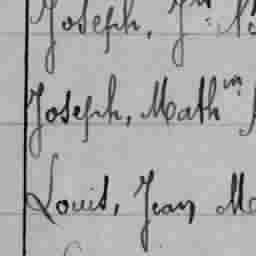 Joseph, Jn
Joseph, Mathin
Louis, Jean Ma